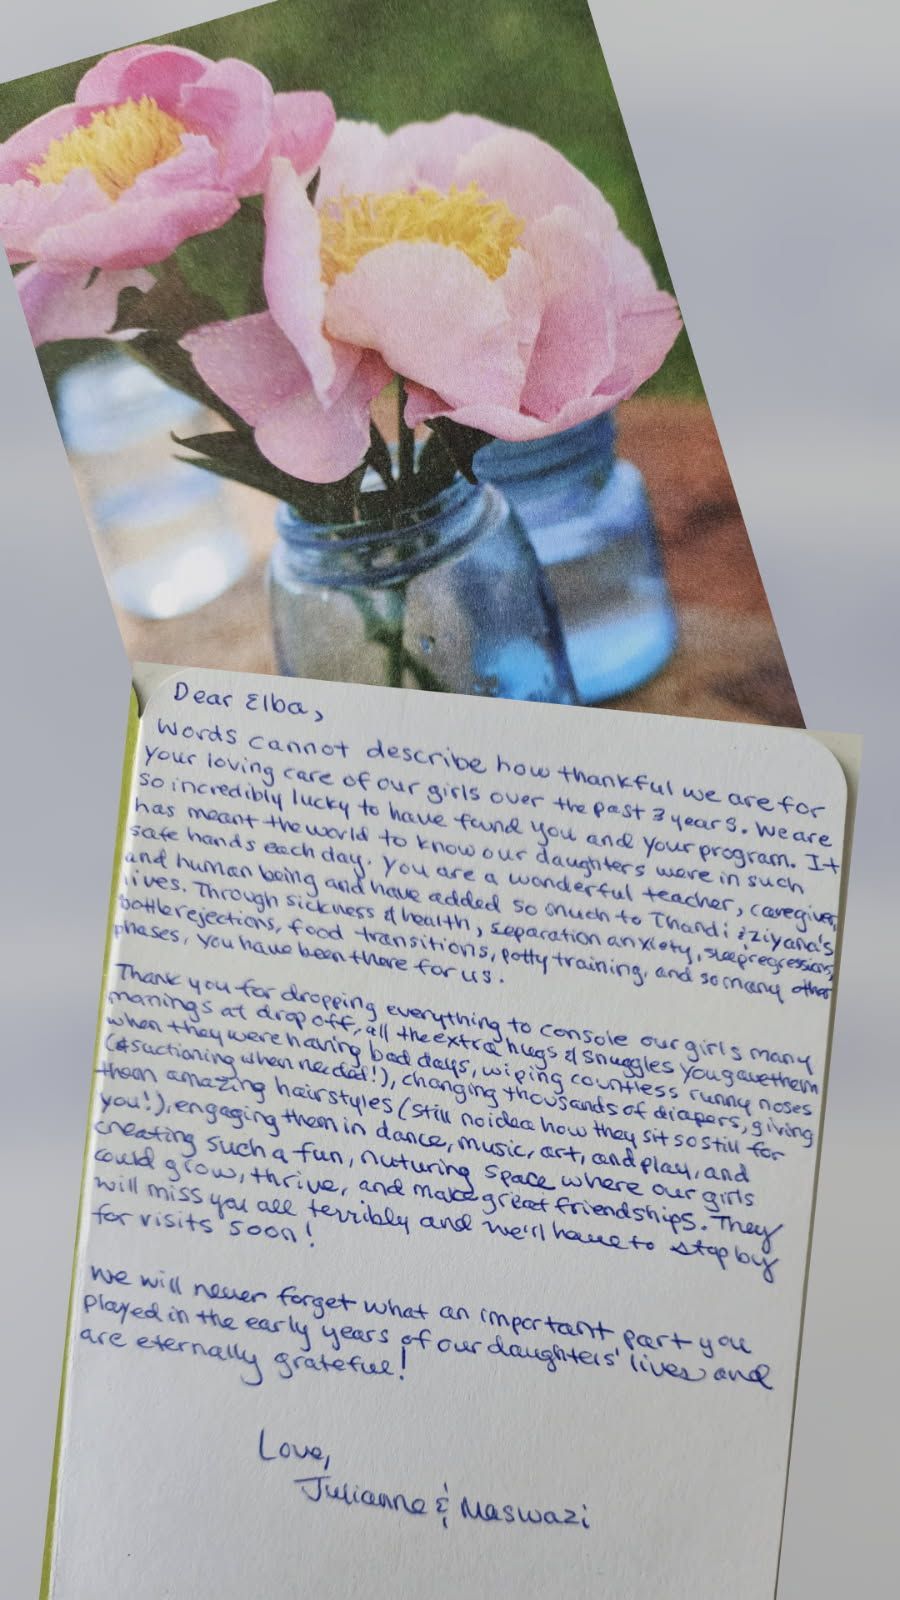 Dear Elba,
Words cannot describe how thankful we are for
your loving care of our girls over the past 3 years. We are
so incredibly lucky to have found you and your program. It
has meant the world to know our daughters were in such
safe hands each day. You are a wonderful teacher, caregiver,
and human being and have added so much to Thandi & Ziyana's
lives. Through sickness & health, separation anxiety, sleep regressions,
bottle rejections, food transitions, potty training, and so many other
phases, you have been there for us.
Thank you for dropping everything to console our girls many
mornings at drop off, all the extra hugs & snuggles you gave them
when they were having bad days, wiping countless runny noses
(& suctioning when needed!), changing thousands of diapers, giving
them amazing hairstyles (still no idea how they sit so still for
you!), engaging them in dance, music, art, and play, and
creating such a fun, nuturing space where our girls
could grow, thrive, and make great friendships. They
will miss you all terribly and we'll have to stop by
for visits soon!
We will never forget what an important part you
played in the early years of our daughters' lives and
are eternally grateful!
Love,
Julianne & Maswazi